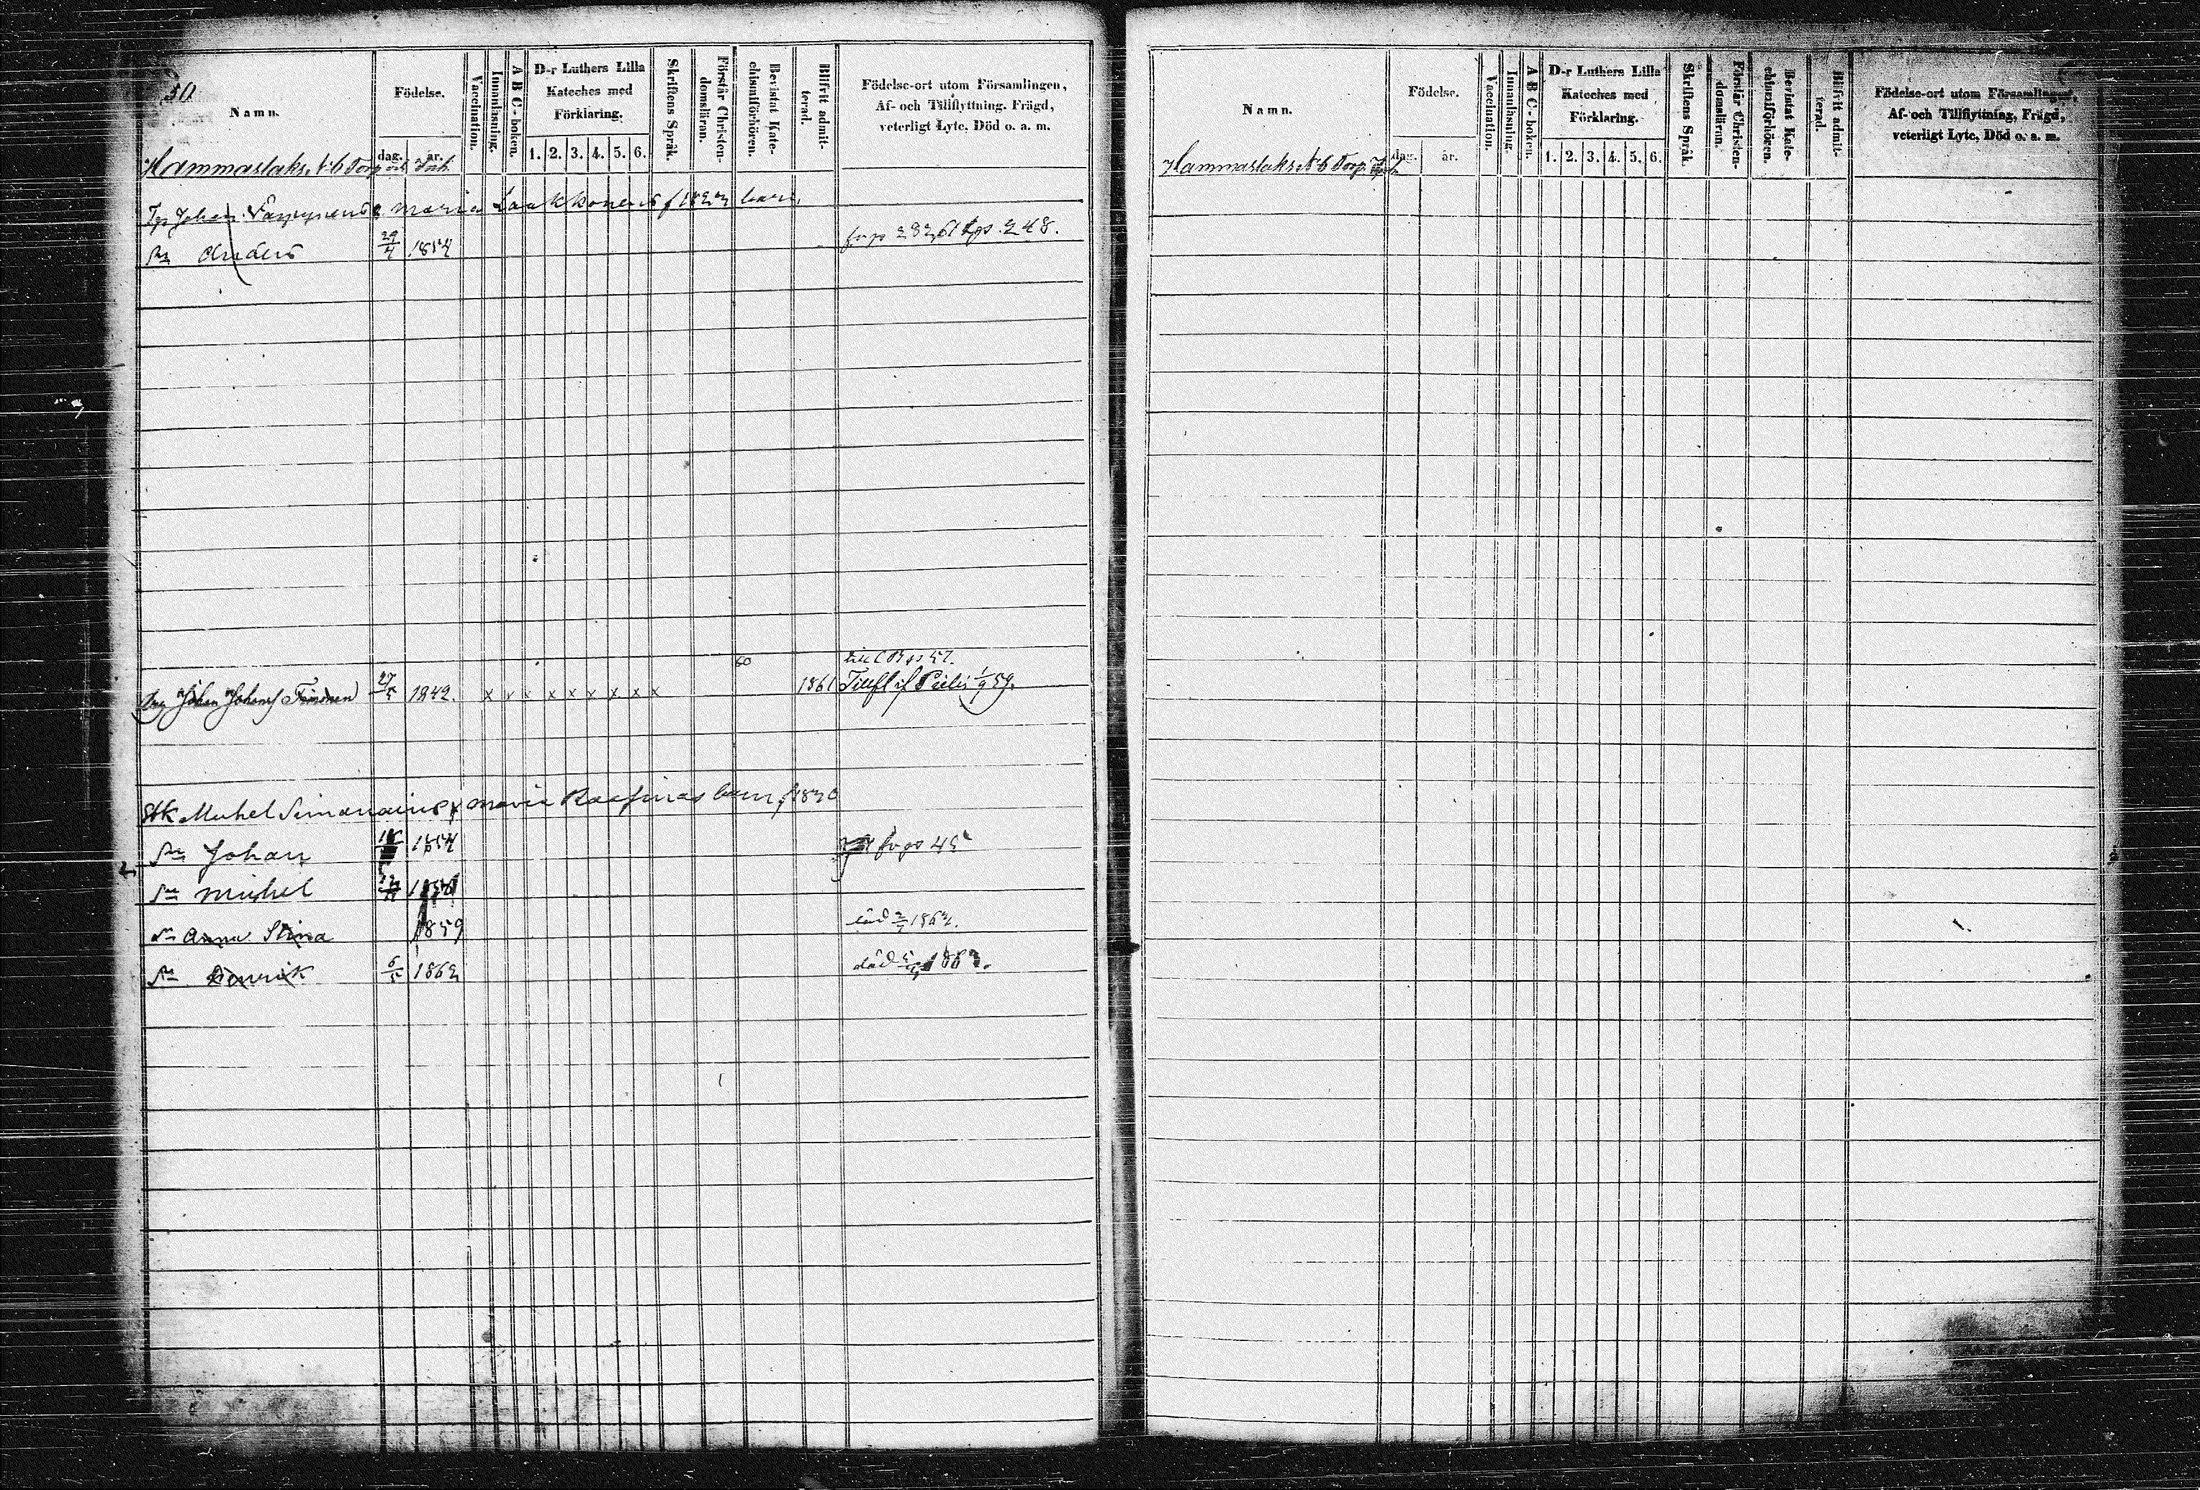 30
Namn.
Födelse.
dag. år.
Vaccination.
Innanläsning.
A B C-boken.
D-r Luthers Lilla
Kateches med
Förklaring.
1. 2. 3. 4. 5. 6.
Skriftens Språk.
Förstår Christen-
domsläran.
Bevistat Kate-
chismiförhören.
Blifvit admit-
terad.
Födelse-ort utom Församlingen,
Af- och Tillflyttning. Frägd,
veterligt Lyte, Död o. a. m.
Hammaslaks N:6 Torp
Johan Maria Laakkonens f 1823 barn
Sn Anders 29/4 1854 fr p 282 248.
till 57.
60
Johan Johans 27/5 1842. x x x x x x x x x 1861 Tillfl af Pielis 1/9 59.
Michel Maria barn f 1830
Sn Johan 1854 fr ps 45
Sn Michel
Anna Stina 1859 död 1862.
Sn Henrik 6/5 1862 död
Namn.
Födelse.
dag. år.
Vaccination.
Innanläsning.
A B C-boken.
D-r Luthers Lilla
Kateches med
Förklaring.
1. 2. 3. 4. 5. 6.
Skriftens Språk.
Förstår Christen-
domsläran.
Bevistat Kate-
chismiförhören.
Blifvit admit-
terad.
Födelse-ort utom Församlingen,
Af- och Tillflyttning, Frägd,
veterligt Lyte, Död o. a. m.
Hammaslaks N:6 Torp